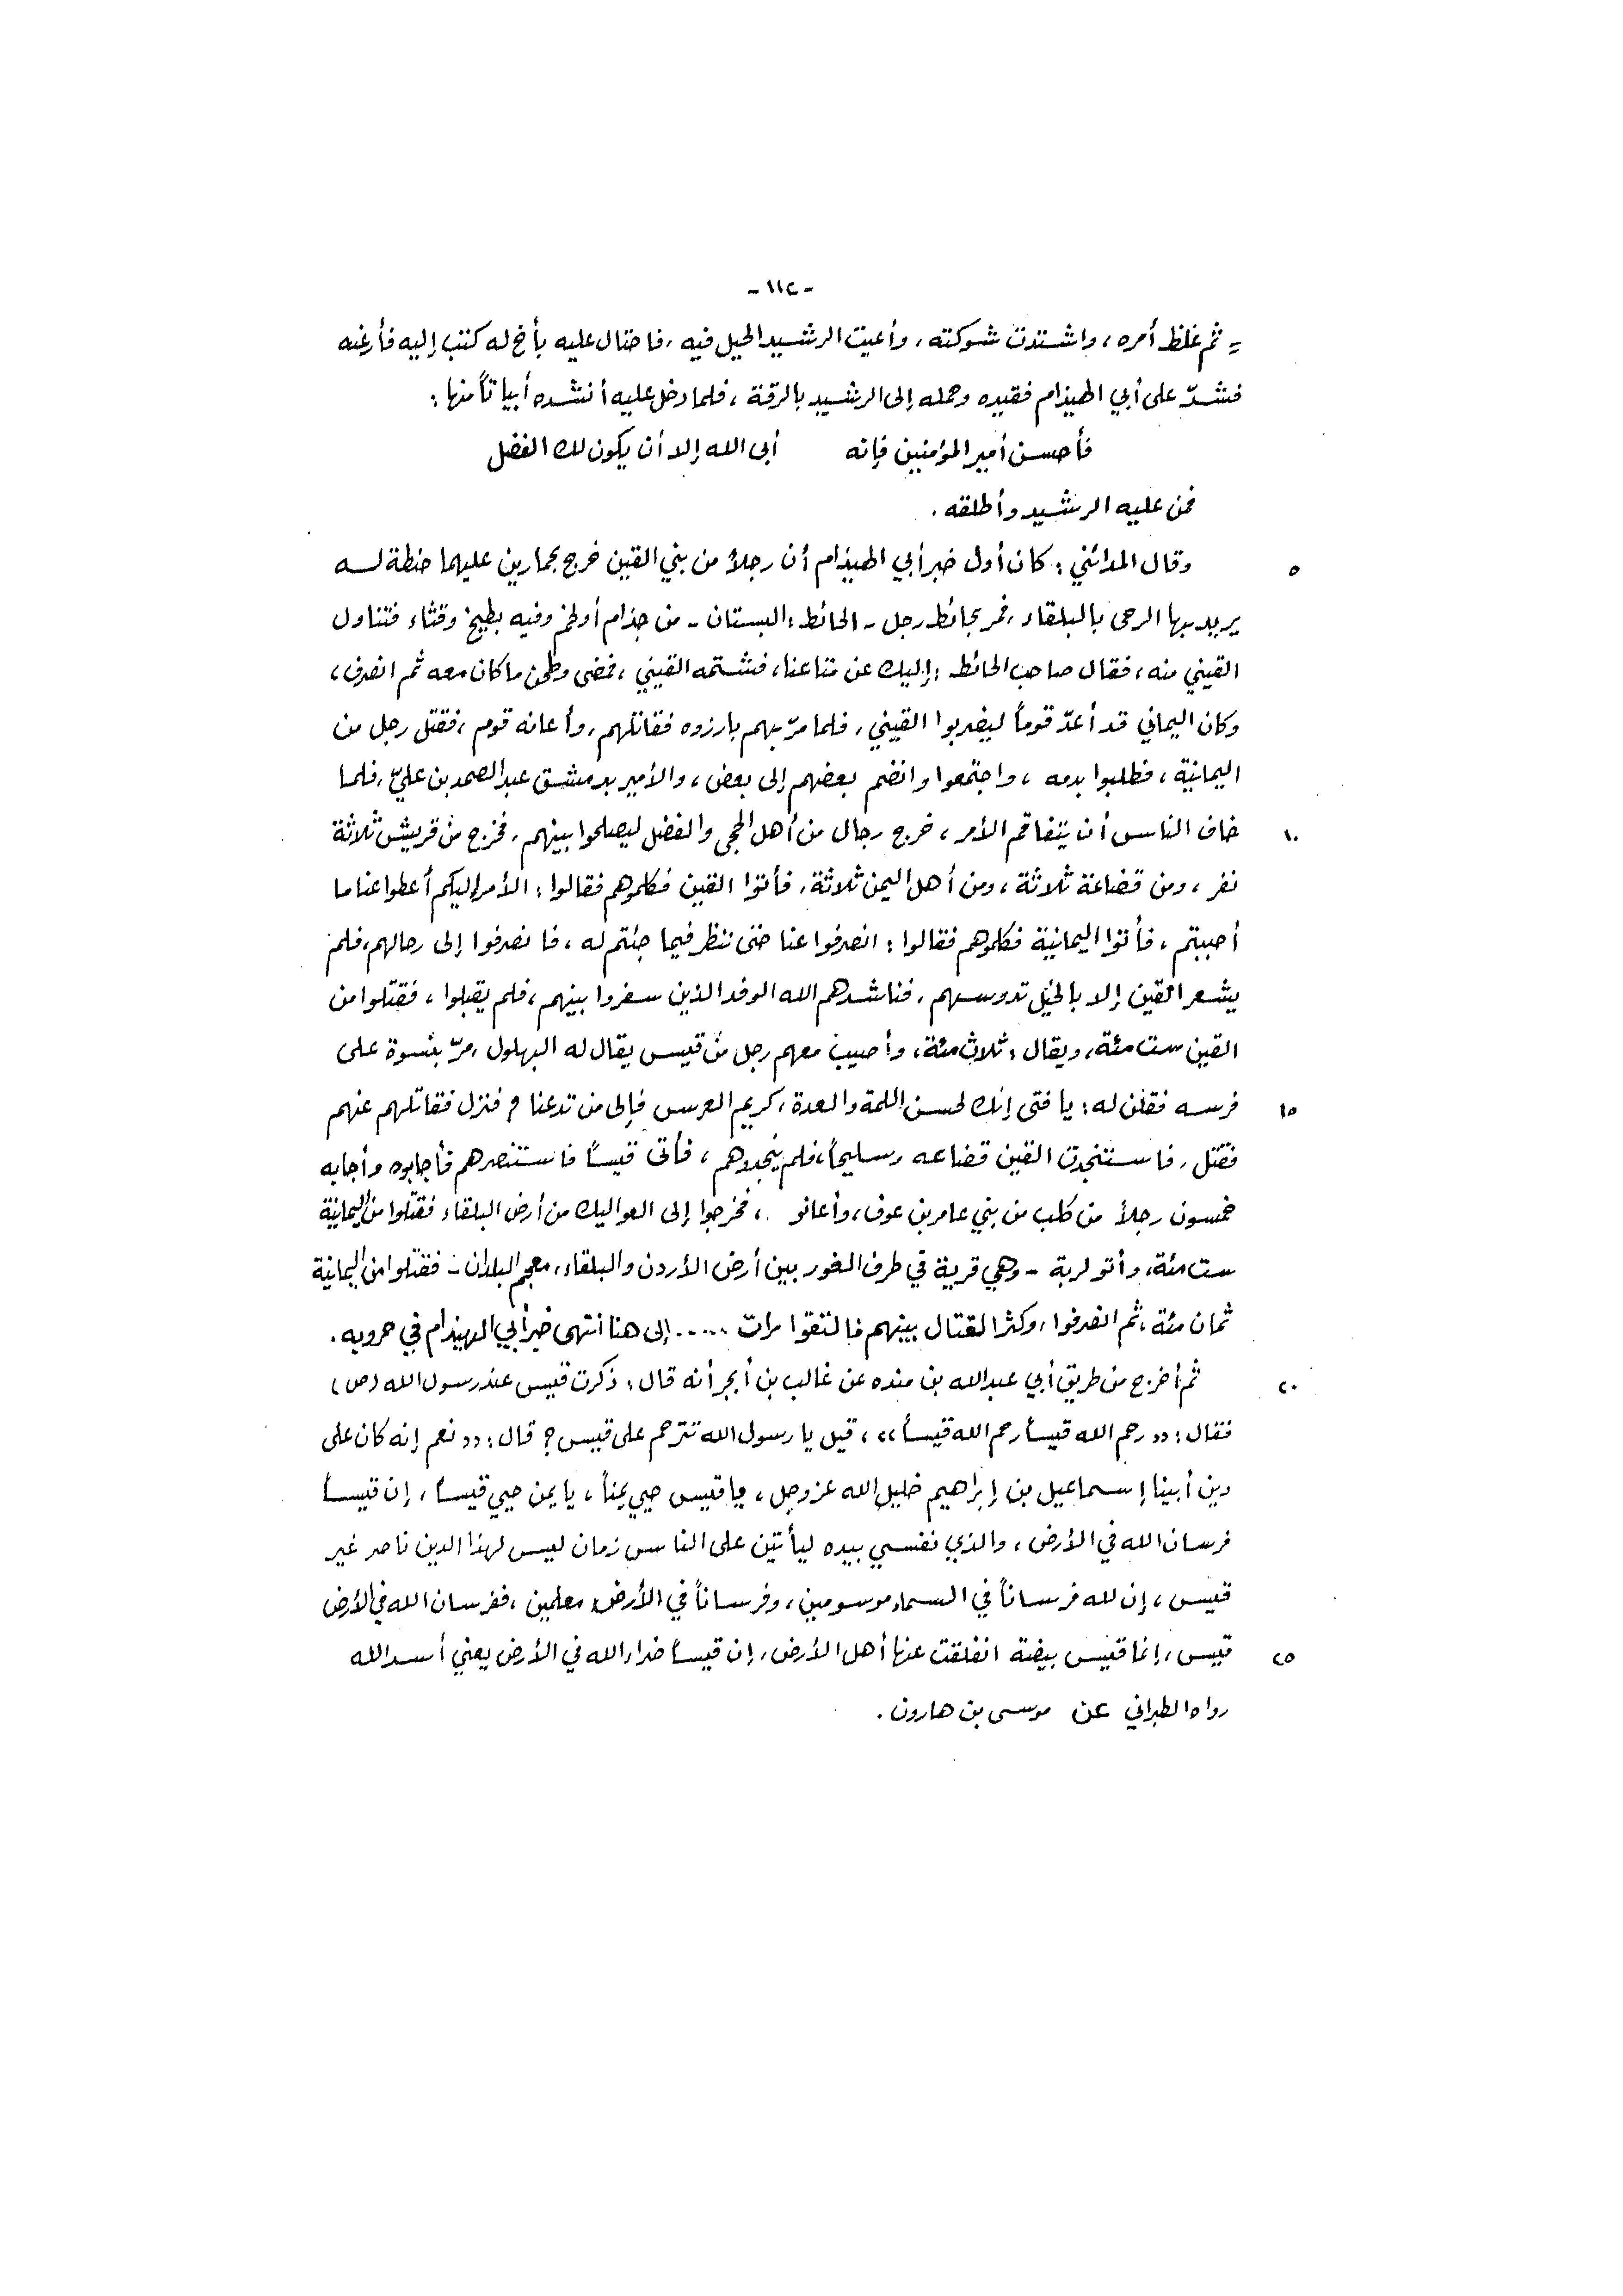 - ١١٢ -
= ثم غلظ أمره، واشتدت شوكته، وأعيت الرشيد الحيل فيه، فاحتال عليه بأخ له كتب إليه فأرغبه
فشدّ على أبي الهيذام فقيده وحمله إلى الرشيد بالرقة، فلما دخل عليه أنشده أبياتاً منها:
فأحسن أمير المؤمنين فإنه    أبى الله إلا أن يكون لك الفضل
فمن عليه الرشيد وأطلقه.
٥ وقال المدائني: كان أول خبر أبي الهيذام أن رجلاً من بني القين خرج بحمارين عليهما حنطة لــه
يريد بها الرحى بالبلقاء، فمر بحائط رجل - الحائط: البستان - من جذام أو لخم وفيه بطيخ وقثاء فتناول
القيني منه، فقال صاحب الحائط: إليك عن متاعنا، فشتمه القيني، فمضى وطحن ما كان معه ثم انصرف،
وكان اليماني قد أعدّ قوماً ليضربوا القيني، فلما مرّ بهم بارزوه فقاتلهم، وأعانه قوم، فقتل رجل من
اليمانية، فطلبوا بدمه، واجتمعوا وانضم بعضهم إلى بعض، والأمير بدمشق عبد الصمد بن عليّ، فلما
١٠ خاف الناس أن يتفاقم الأمر، خرج رجال من أهل الحجى والفضل ليصلحوا بينهم، فخرج من قريش ثلاثة
نفر، ومن قضاعة ثلاثة، ومن أهل اليمن ثلاثة، فأتوا القين فكلموهم فقالوا: الأمر إليكم أعطوا عنا ما
أحببتم، فأتوا اليمانية فكلموهم فقالوا: انصرفوا عنا حتى ننظر فيما جئتم له، فانصرفوا إلى رحالهم، فلم
يشعر القين إلا بالخيل تدوسهم، فناشدهم الله الوفد الذين سفروا بينهم، فلم يقبلوا، فقتلوا من
القين ست مئة، ويقال: ثلاث مئة، وأصيب معهم رجل من قيس يقال له البهلول، مرّ بنسوة على
١٥ فرسه فقلن له: يا فتى إنك لحسن اللمة والعدة، كريم العرس فإلى من تدعنا؟ فنزل فقاتلهم عنهم
فقتل، فاستنجدت القين قضاعه وسليحاً، فلم ينجدوهم، فأتى قيساً فاستنصرهم فأجابوه وأجابه
خمسون رجلاً من كلب من بني عامر بن عوف، وأعانو .، فخرجوا إلى العواليك من أرض البلقاء فقتلوا من اليمانية
ست مئة، وأتو لربة - وهي قرية في طرف الغور بين أرض الأردن والبلقاء، معجم البلدان - فقتلوا من اليمانية
ثمان مئة، ثم انصرفوا، وكثر القتال بينهم فالتقوا مرات ..... إلى هنا انتهى خبر أبي الهيذام في حروبه.
٢٠ ثم أخرج من طريق أبي عبد الله بن منده عن غالب بن أبجر أنه قال: ذكرت قيس عند رسول الله (ص)
فقال: «رحم الله قيساً رحم الله قيساً»، قيل يا رسول الله تترحم على قيس؟ قال: «نعم إنه كان على
دين أبينا إسماعيل بن إبراهيم خليل الله عز وجل، يا قيس حيي يمناً، يا يمن حيي قيساً، إن قيساً
فرسان الله في الأرض، والذي نفسي بيده ليأتين على الناس زمان ليس لهذا الدين ناصر غير
قيس، إن لله فرساناً في السماء موسومين، وفرساناً في الأرض معلمين، ففرسان الله في الأرض
٢٥ قيس، إنما قيس بيضة انفلقت عنها أهل الأرض، إن قيساً ضراء الله في الأرض يعني أسد الله
رواه الطبراني عن موسى بن هارون.